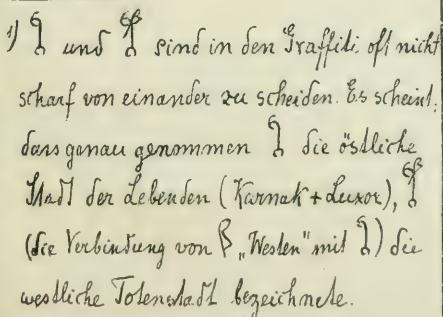 1) 𓌀 und 𓋆 sind in den Graffiti oft nicht
scharf von einander zu scheiden. Es scheint,
dass genau genommen 𓌀 die östliche
Stadt der Lebenden (Karnak + Luxor), 𓋆
(die Verbindung von 𓆄 „Westen" mit 𓌀) die
westliche Totenstadt bezeichnete.